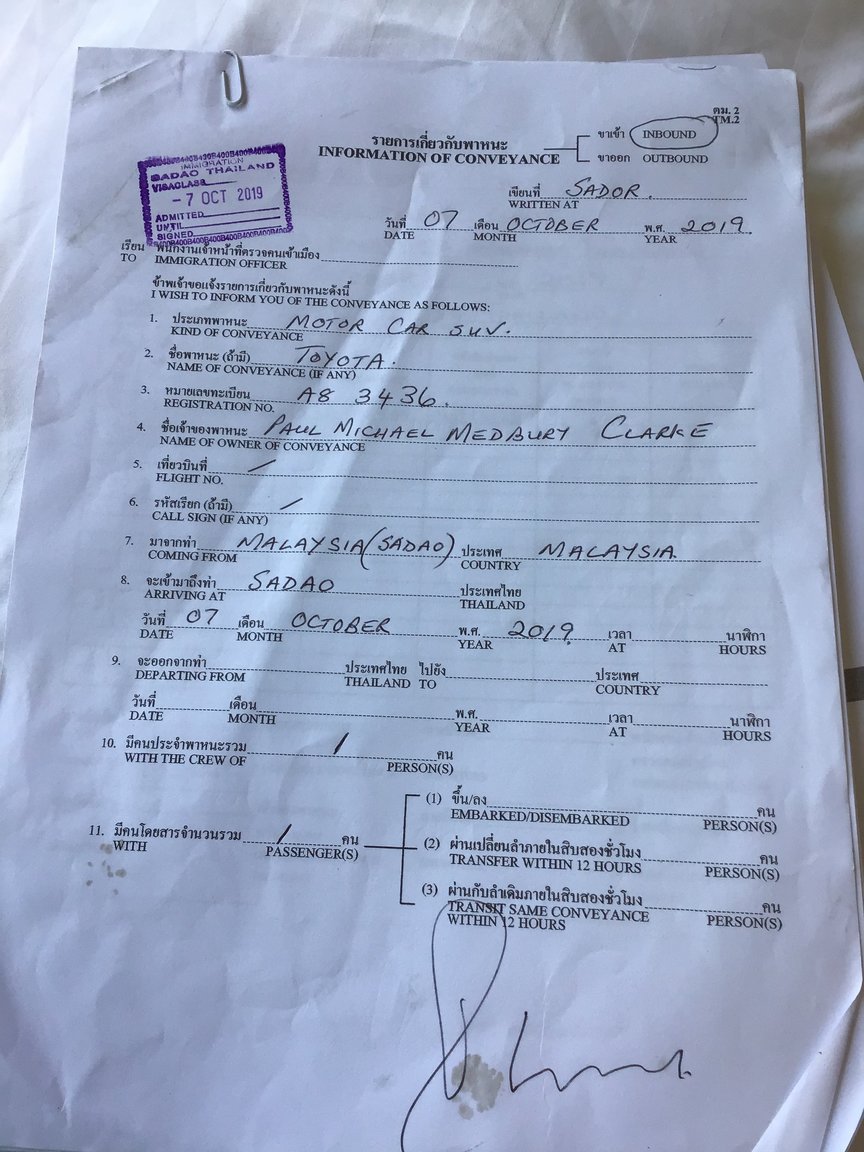 ตม. 2
TM.2
รายการเกี่ยวกับพาหนะ
INFORMATION OF CONVEYANCE
ขาเข้า INBOUND
ขาออก OUTBOUND
IMMIGRATION
SADAO THAILAND
VISACLASS
- 7 OCT 2019
ADMITTED
UNTIL
SIGNED
เขียนที่ SADOR.
WRITTEN AT
วันที่ 07 เดือน OCTOBER พ.ศ. 2019
DATE MONTH YEAR
เรียน พนักงานเจ้าหน้าที่ตรวจคนเข้าเมือง
TO IMMIGRATION OFFICER
ข้าพเจ้าขอแจ้งรายการเกี่ยวกับพาหนะดังนี้
I WISH TO INFORM YOU OF THE CONVEYANCE AS FOLLOWS:
1. ประเภทพาหนะ MOTOR CAR SUV.
KIND OF CONVEYANCE
2. ชื่อพาหนะ (ถ้ามี) TOYOTA.
NAME OF CONVEYANCE (IF ANY)
3. หมายเลขทะเบียน A8 3436.
REGISTRATION NO.
4. ชื่อเจ้าของพาหนะ PAUL MICHAEL MEDBURY CLARKE
NAME OF OWNER OF CONVEYANCE
5. เที่ยวบินที่ /
FLIGHT NO.
6. รหัสเรียก (ถ้ามี) /
CALL SIGN (IF ANY)
7. มาจากท่า MALAYSIA (SADAO) ประเทศ MALAYSIA
COMING FROM COUNTRY
8. จะเข้ามาถึงท่า SADAO ประเทศไทย
ARRIVING AT THAILAND
วันที่ 07 เดือน OCTOBER พ.ศ. 2019 เวลา นาฬิกา
DATE MONTH YEAR AT HOURS
9. จะออกจากท่า ประเทศไทย ไปยัง ประเทศ
DEPARTING FROM THAILAND TO COUNTRY
วันที่ เดือน พ.ศ. เวลา นาฬิกา
DATE MONTH YEAR AT HOURS
10. มีคนประจำพาหนะรวม 1 คน
WITH THE CREW OF PERSON(S)
11. มีคนโดยสารจำนวนรวม 1 คน
WITH PASSENGER(S)
(1) ขึ้น/ลง คน
EMBARKED/DISEMBARKED PERSON(S)
(2) ผ่านเปลี่ยนลำภายในสิบสองชั่วโมง คน
TRANSFER WITHIN 12 HOURS PERSON(S)
(3) ผ่านกับลำเดิมภายในสิบสองชั่วโมง คน
TRANSIT SAME CONVEYANCE PERSON(S)
WITHIN 12 HOURS